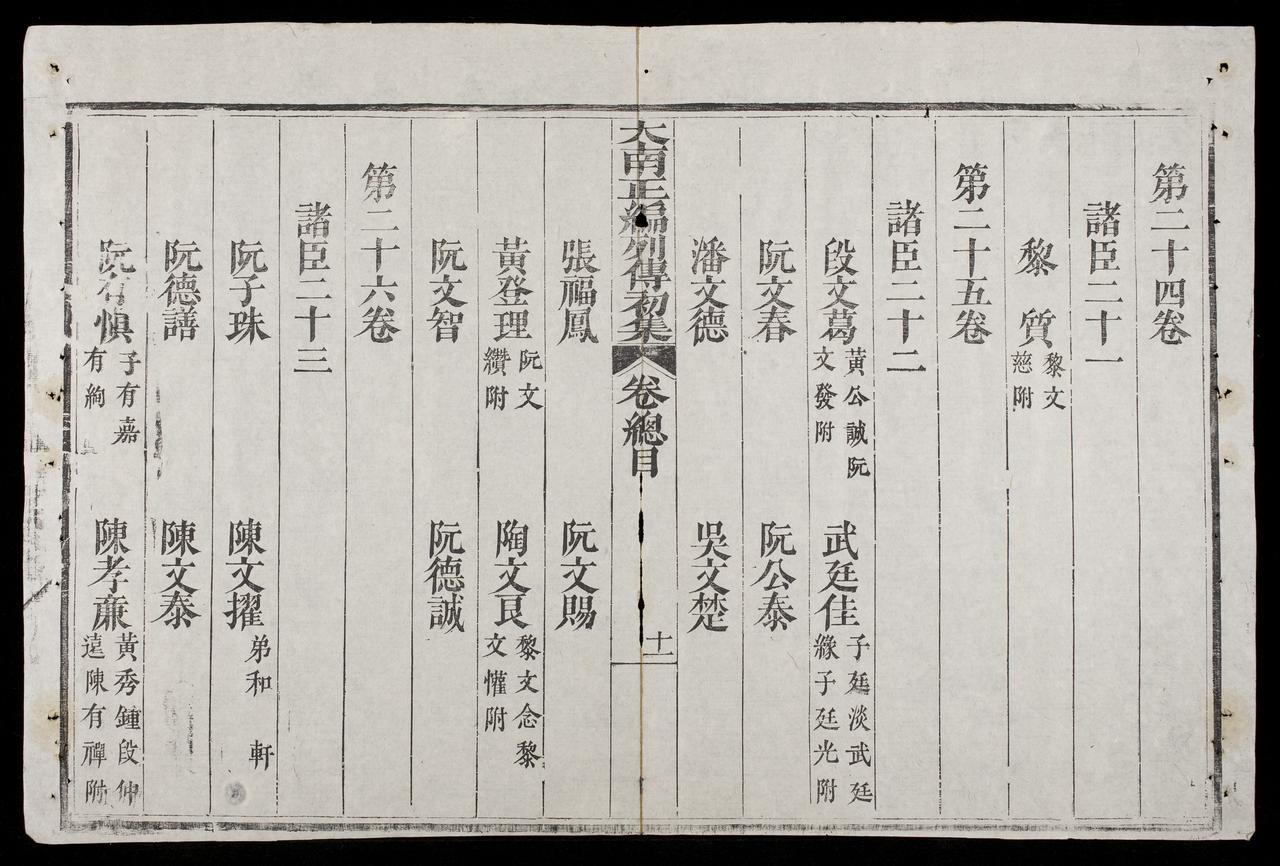 第二十四卷
諸臣二十一
黎質 黎文慈附
第二十五卷
諸臣二十二
段文葛 黃公誠阮文發附 武廷佳 子廷淡武廷緣子廷光附
阮文春 阮公泰
潘文德 吳文楚
大南正編列傳初集 卷總目 十一
張福鳳 阮文賜
黃登理 阮文纘附 陶文艮 黎文念黎文懽附
阮文智 阮德誠
第二十六卷
諸臣二十三
阮子珠 陳文擢 弟和 軒
阮德譜 陳文泰
阮有慎 子有嘉有絢 陳孝廉 黃秀鍾段仲遠陳有禪附